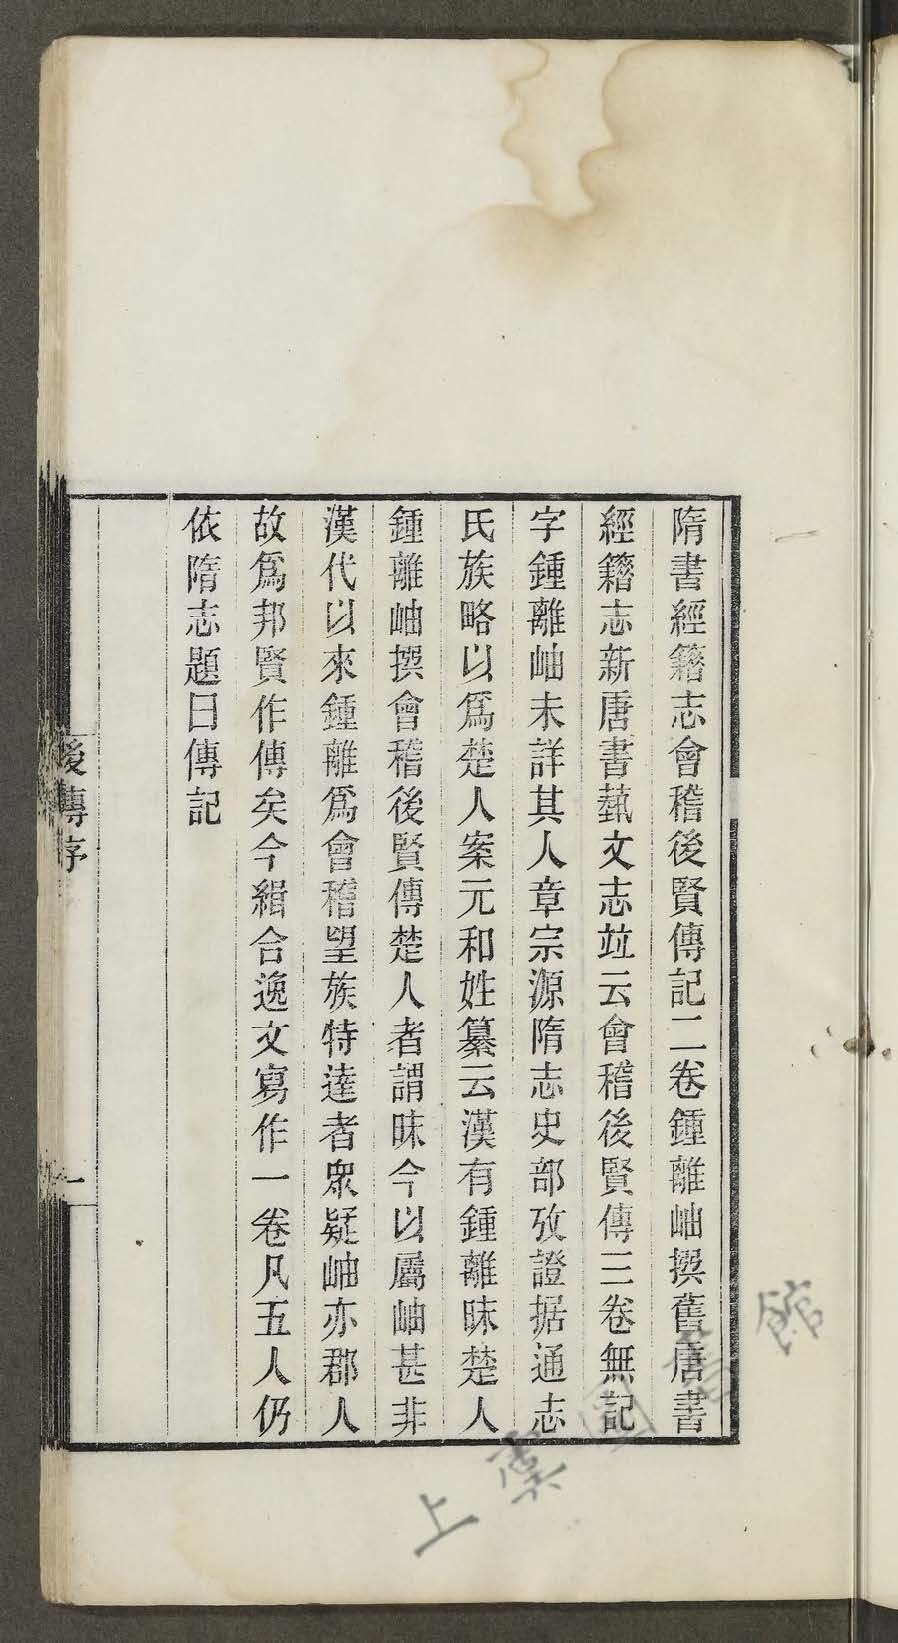 隋書經籍志會稽後賢傳記二卷鍾離岫撰舊唐書
經籍志新唐書蓺文志竝云會稽後賢傳三卷無記
字鍾離岫未詳其人章宗源隋志史部攷證据通志
氏族略以爲楚人案元和姓纂云漢有鍾離昧楚人
鍾離岫撰會稽後賢傳楚人者謂昧今以屬岫甚非
漢代以來鍾離爲會稽望族特達者衆疑岫亦郡人
故爲邦賢作傳矣今緝合逸文寫作一卷凡五人仍
依隋志題曰傳記
後傳序
一
上虞圖書館